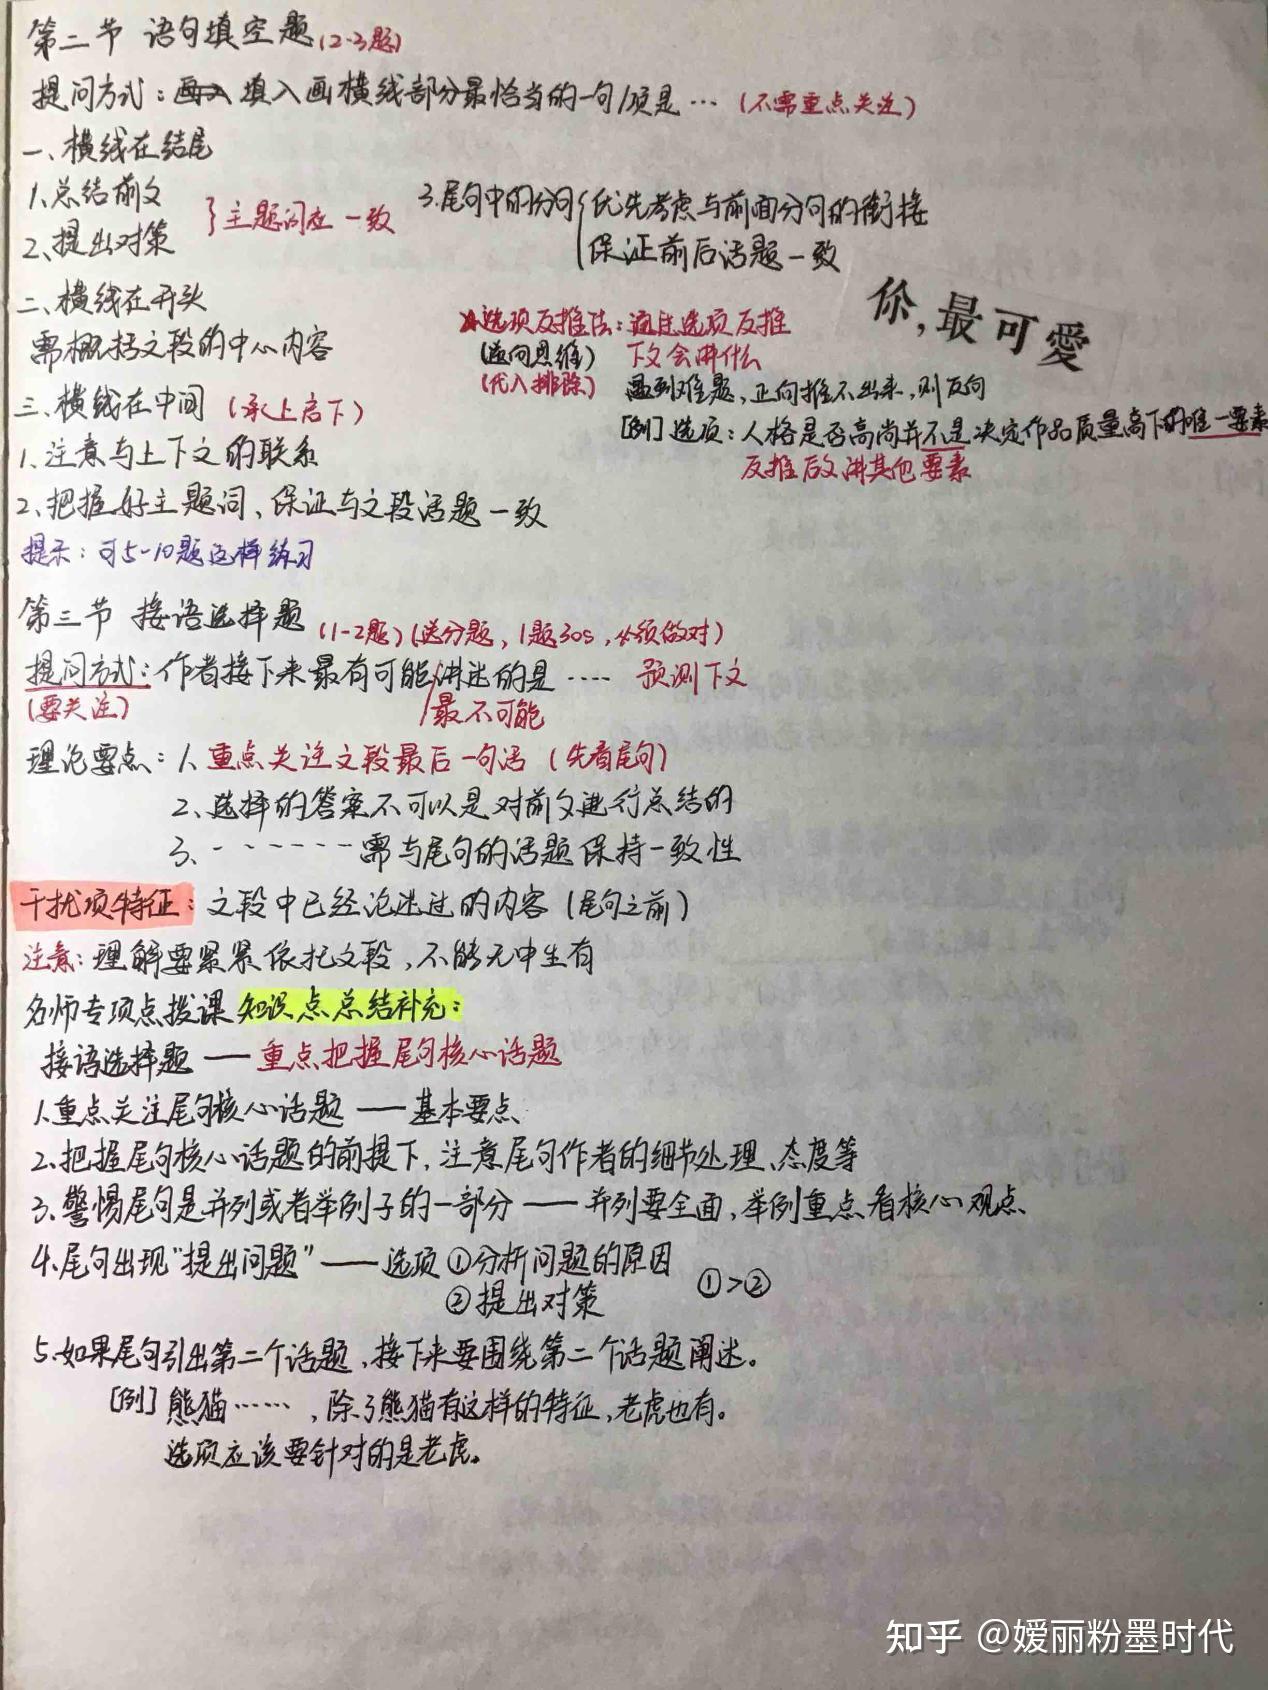 第二节 语句填空题(2-3题)
提问方式：填入画横线部分最恰当的一句/项是…（不需重点关注）
一、横线在结尾
1、总结前文
2、提出对策
}主题词应一致
3、尾句中的分句{优先考虑与前面分句的衔接
保证前后话题一致
二、横线在开头
需概括文段的中心内容
选项反推法：通过选项反推
下文会讲什么
(逆向思维)
(代入排除)
遇到难题，正向推不出来，则反向
[例]选项：人格是否高尚并不是决定作品质量高下的唯一要素
反推后文讲其他要素
你，最可愛
三、横线在中间（承上启下）
1、注意与上下文的联系
2、把握好主题词、保证与文段话题一致
提示：可5-10题这样练习
第三节 接语选择题(1-2题)(送分题，1题30s，必须做对)
提问方式：作者接下来最有可能/讲述的是…… 预测下文
(要关注)
/最不可能
理论要点：1、重点关注文段最后一句话（先看尾句）
2、选择的答案不可以是对前文进行总结的
3、-------需与尾句的话题保持一致性
干扰项特征：文段中已经论述过的内容（尾句之前）
注意：理解要紧紧依托文段，不能无中生有
名师专项点拨课知识点总结补充：
接语选择题——重点把握尾句核心话题
1、重点关注尾句核心话题——基本要点
2、把握尾句核心话题的前提下，注意尾句作者的细节处理、态度等
3、警惕尾句是并列或者举例子的一部分——并列要全面，举例重点看核心观点
4、尾句出现“提出问题”——选项①分析问题的原因
②提出对策
①>②
5、如果尾句引出第二个话题，接下来要围绕第二个话题阐述。
[例]熊猫……，除了熊猫有这样的特征，老虎也有。
选项应该要针对的是老虎。
知乎 @嫒丽粉墨时代